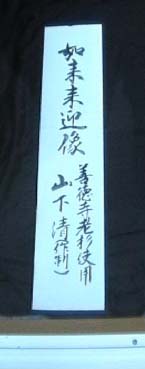 如来来迎像
善徳寺老杉使用
山下清作刻)